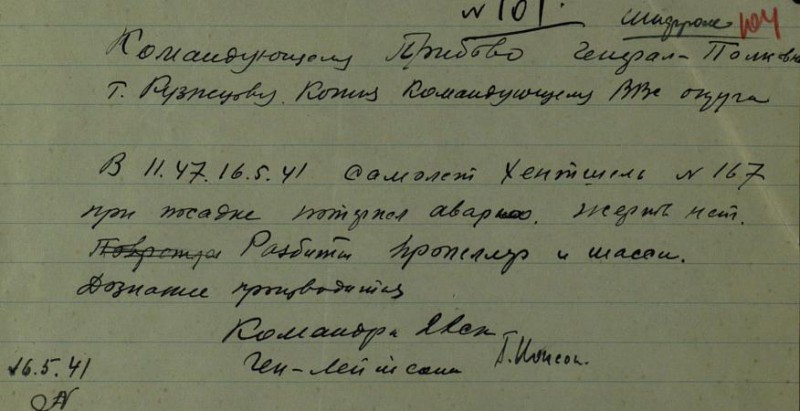 № 101. Шифром 104
Командующему Прибово Генерал-Полковн
т. Кузнецову. Копия Командующему ВВС округа
В 11.47. 16.5.41 самолет Хентшель № 167
при посадке потерпел аварию. Жертв нет.
Разбиты пропеллер и шасси.
Дознание производится
Командир
Ген-Лейтенант
16.5.41